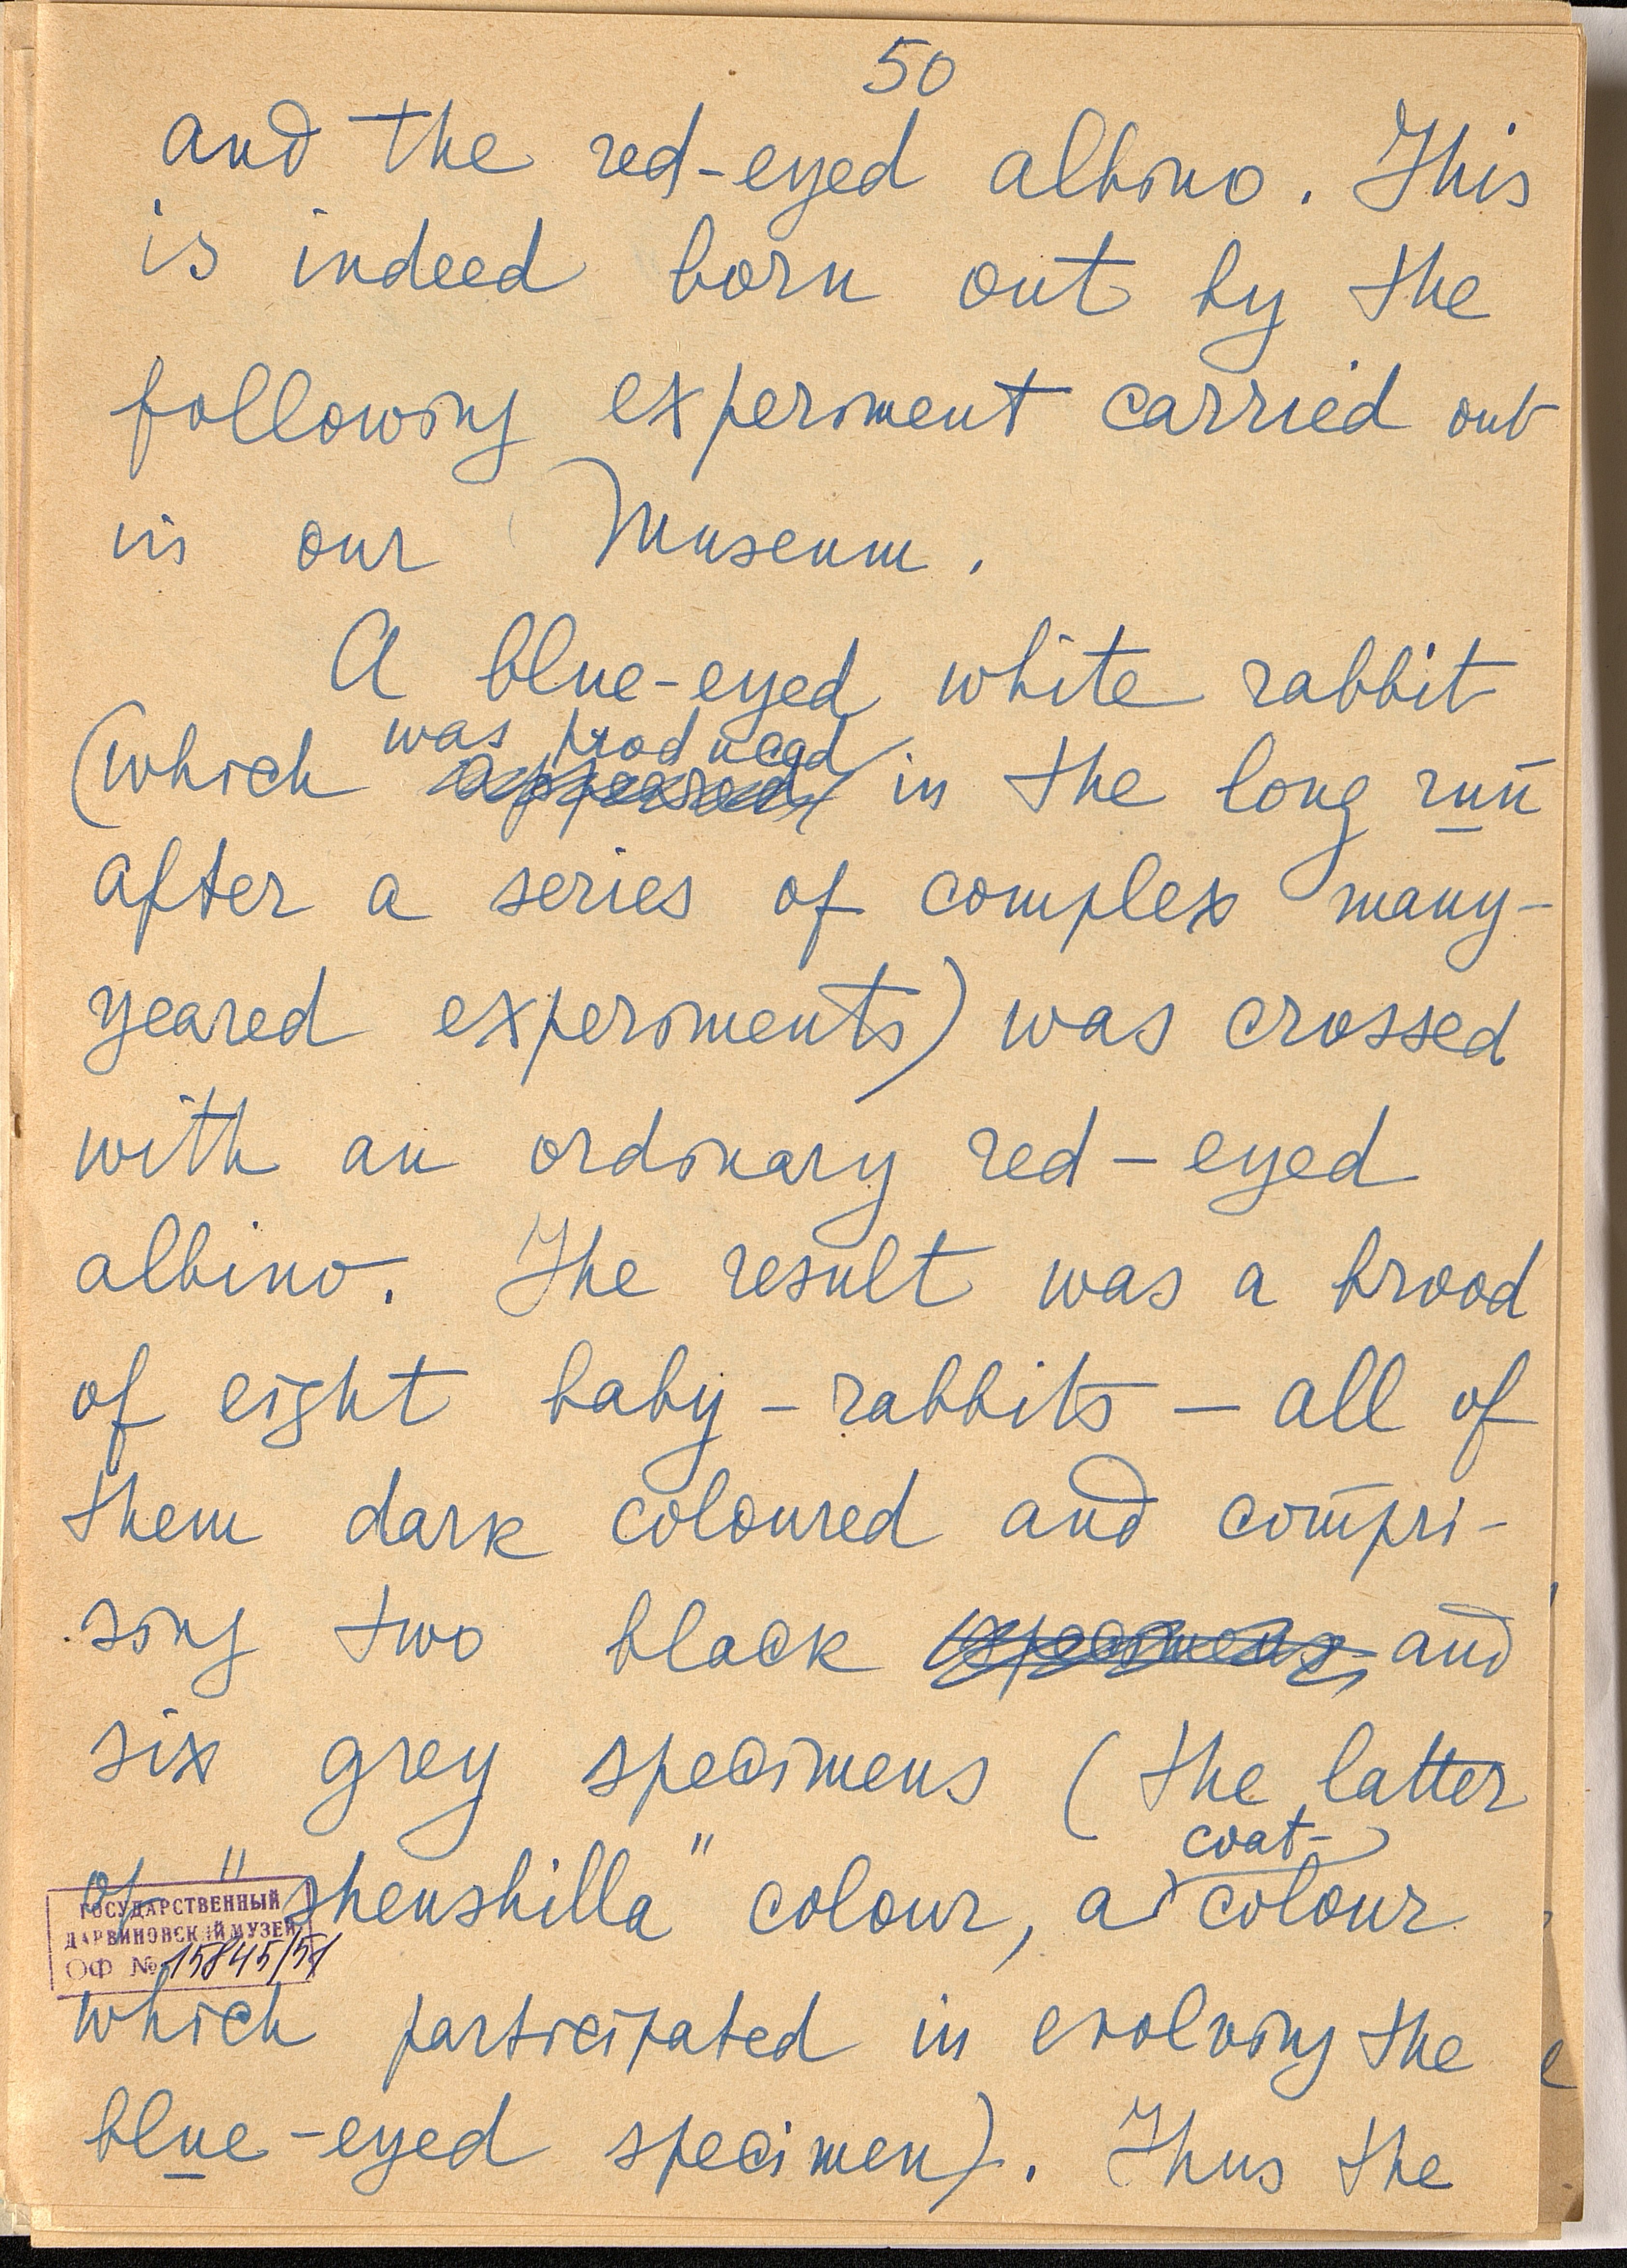 50
and the red-eyed albino. This
is indeed born out by the
following experiment carried out
in our Museum.
A blue-eyed white rabbit
was produced
(which appeared in the long run
after a series of complex many-
yeared experiments) was crossed
with an ordinary red-eyed
albino. The result was a brood
of eight baby-rabbits - all of
them dark coloured and compri-
sing two black specimens, and
six grey specimens (the latter
coat-
of "shenshilla" colour, a colour
ГОСУДАРСТВЕННЫЙ
ДАРВИНОВСКИЙ МУЗЕЙ
ОФ № 15845/51
which participated in evolving the
blue-eyed specimen). Thus the